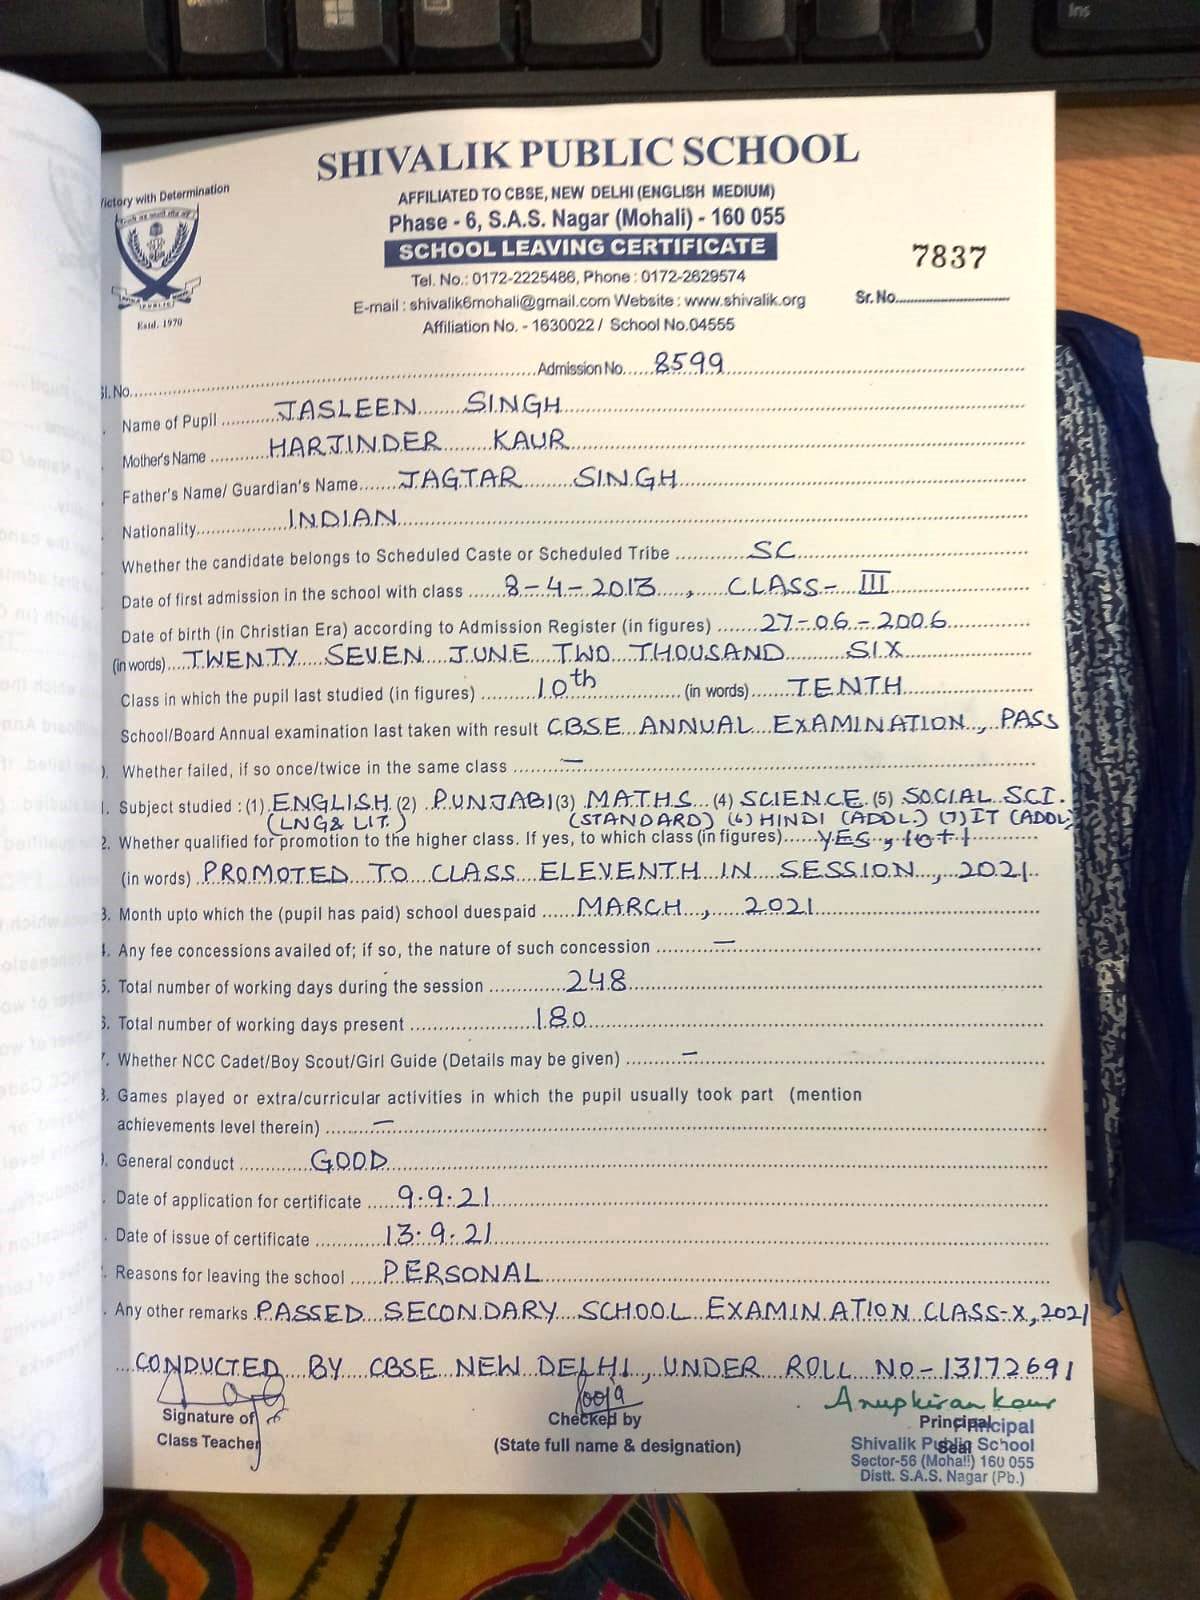 SHIVALIK PUBLIC SCHOOL
Victory with Determination
AFFILIATED TO CBSE, NEW DELHI (ENGLISH MEDIUM)
Phase - 6, S.A.S. Nagar (Mohali) - 160 055
SCHOOL LEAVING CERTIFICATE
7837
Tel. No.: 0172-2225486, Phone : 0172-2629574
E-mail : shivalik6mohali@gmail.com Website : www.shivalik.org
Sr. No.
Estd. 1970
Affiliation No. - 1630022 / School No.04555
Sl. No. Admission No. 8599
Name of Pupil JASLEEN SINGH
Mother's Name HARJINDER KAUR
Father's Name/ Guardian's Name JAGTAR SINGH
Nationality INDIAN
Whether the candidate belongs to Scheduled Caste or Scheduled Tribe SC
Date of first admission in the school with class 8-4-2013, CLASS- III
Date of birth (in Christian Era) according to Admission Register (in figures) 27-06-2006
(in words) TWENTY SEVEN JUNE TWO THOUSAND SIX
Class in which the pupil last studied (in figures) 10th (in words) TENTH
School/Board Annual examination last taken with result CBSE ANNUAL EXAMINATION, PASS
Whether failed, if so once/twice in the same class —
Subject studied : (1) ENGLISH (2) PUNJABI (3) MATHS (4) SCIENCE (5) SOCIAL SCI.
(LNG & LIT.) (STANDARD) (6) HINDI (ADDL.) (7) IT (ADDL)
2. Whether qualified for promotion to the higher class. If yes, to which class (in figures) YES, 10+1
(in words) PROMOTED TO CLASS ELEVENTH IN SESSION, 2021
3. Month upto which the (pupil has paid) school duespaid MARCH, 2021
Any fee concessions availed of; if so, the nature of such concession —
5. Total number of working days during the session 248
6. Total number of working days present 180
Whether NCC Cadet/Boy Scout/Girl Guide (Details may be given) —
Games played or extra/curricular activities in which the pupil usually took part (mention
achievements level therein) —
General conduct GOOD
Date of application for certificate 9.9.21
Date of issue of certificate 13.9.21
Reasons for leaving the school PERSONAL
Any other remarks PASSED SECONDARY SCHOOL EXAMINATION CLASS-X, 2021
CONDUCTED BY CBSE NEW DELHI, UNDER ROLL NO-13172691
Anupkiran Kaur
Signature of Class Teacher
Checked by
(State full name & designation)
Principal
Seal
Principal
Shivalik Public School
Sector-56 (Mohali) 160 055
Distt. S.A.S. Nagar (Pb.)
Ins